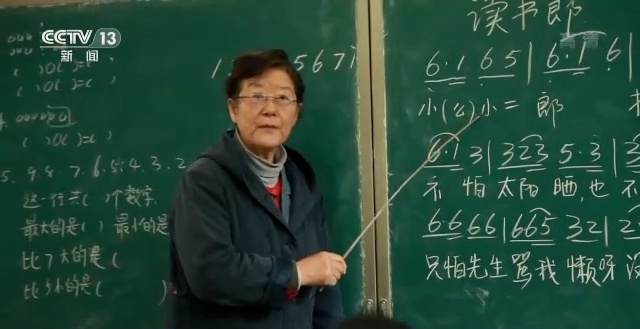 CCTV 13
新闻
高清
读书郎
1 5 6 7 i
6·1 6 5 | 6·1 6
小(公)小二郎
6·1 3 | 323 5·3 | 3
不怕太阳晒,也不
6·6 66 | 665 32 | 2
只怕先生骂我懒呀没
( )○( )=( )
( )○( )=( )
( )○( )=( )
5. 9. 8. 7. 6. 5. 4. 3. 2
这一行共( )个数字
最大的是( ) 最小的是
比7大的是(
比5小的是( )